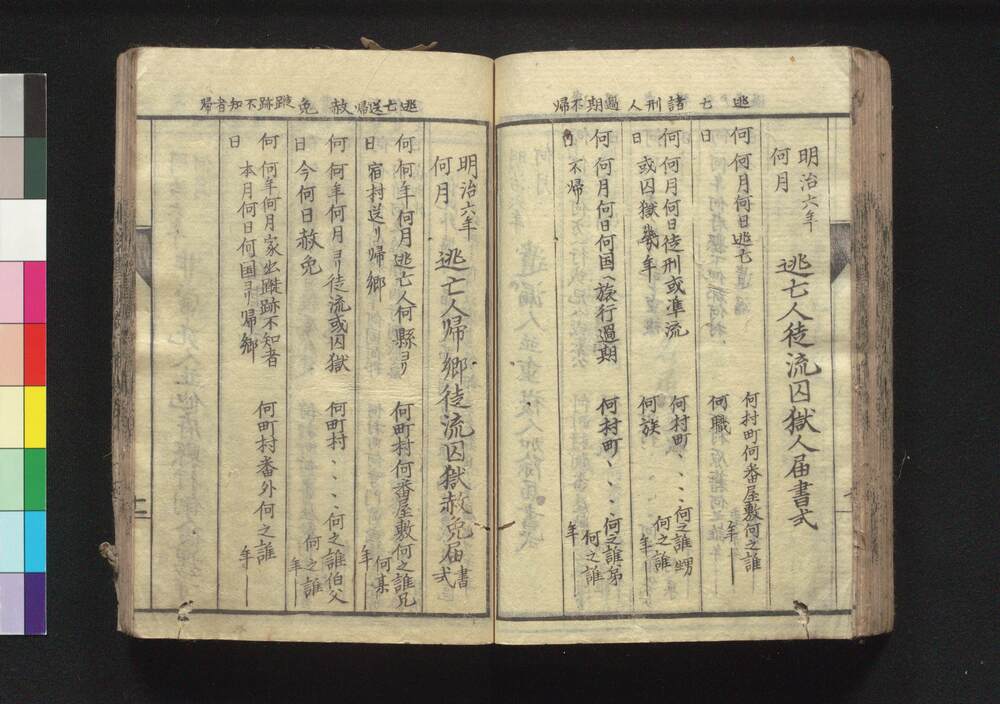 逃亡 諸刑人 過期不帰
明治六年
何月
逃亡人徒流囚獄人届書式
何 何月何日逃亡
日
何村町何番屋敷何之誰
何職 年
何 何月何日徒刑或準流
日 或囚獄幾年
何村町、、、何之誰甥
何族 何之誰
年
何 何月何日何国ヘ旅行過期
日 不帰
何村町、、、何之誰弟
何之誰
年
逃亡送帰 赦免 踪跡不知者帰
明治六年
何月
逃亡人帰郷徒流囚獄赦免届書式
何 何年何月逃亡人何縣ヨリ
日 宿村送リ帰郷
何町村何番屋敷何之誰兄
何某
年
何 何年何月ヨリ徒流或囚獄
日 今何日赦免
何町村、、、何之誰伯父
何之誰
年
何 何年何月家出踪跡不知者
日 本月何日何国ヨリ帰郷
何町村番外何之誰
年
二